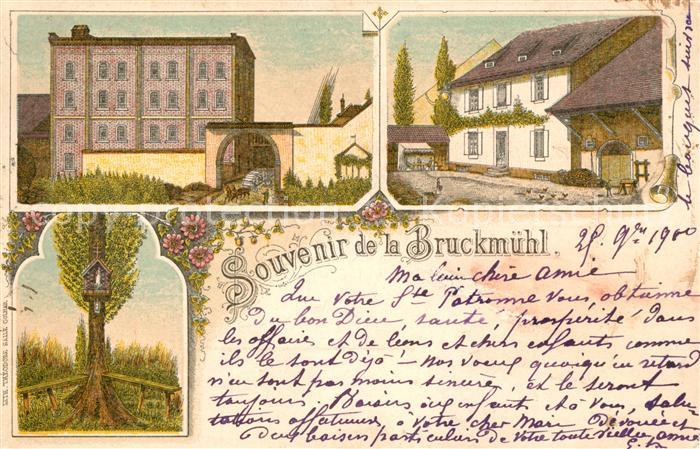 Souvenir de la Bruckmühl.
25 9bre 1900
Ma bien chère amie
Que votre Ste Patronne vous obtienne
du bon Dieu santé, prospérité dans
les affaires et de bons et chers enfants comme
ils le sont déjà! – Nos voeux quoiqu'en retard
n'en sont pas moins sincères, et le seront
toujours. Baisers aux enfants et à vous, salu-
tations affectueuses à votre cher Mari. Dévouée et
deux baisers particuliers de votre toute vieille amie
LITH. THÉODORE SALLE COLMAR